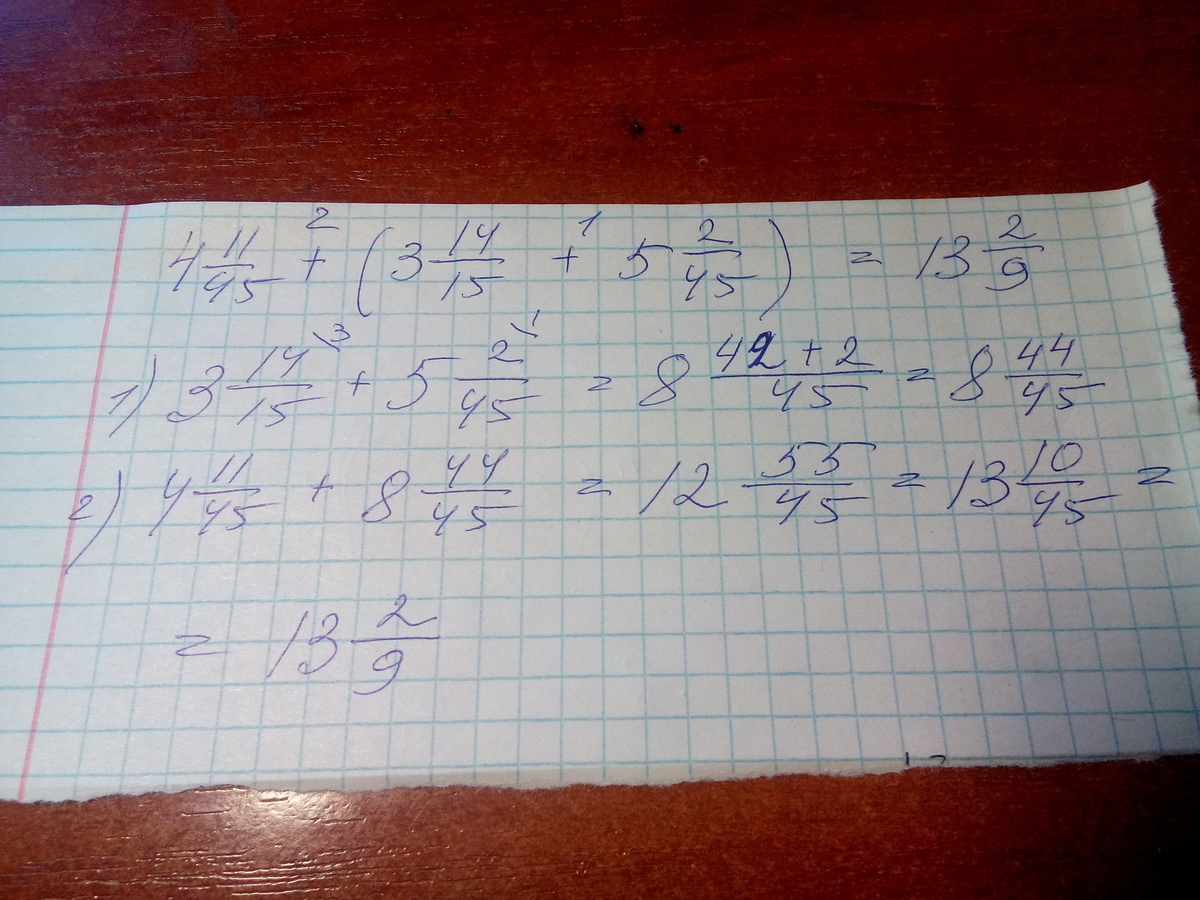 4 11/45 + (3 14/15 + 5 2/45) = 13 2/9
1) 3 14/15 \3 + 5 2/45 \1 = 8 42+2/45 = 8 44/45
2) 4 11/45 + 8 44/45 = 12 55/45 = 13 10/45 =
= 13 2/9